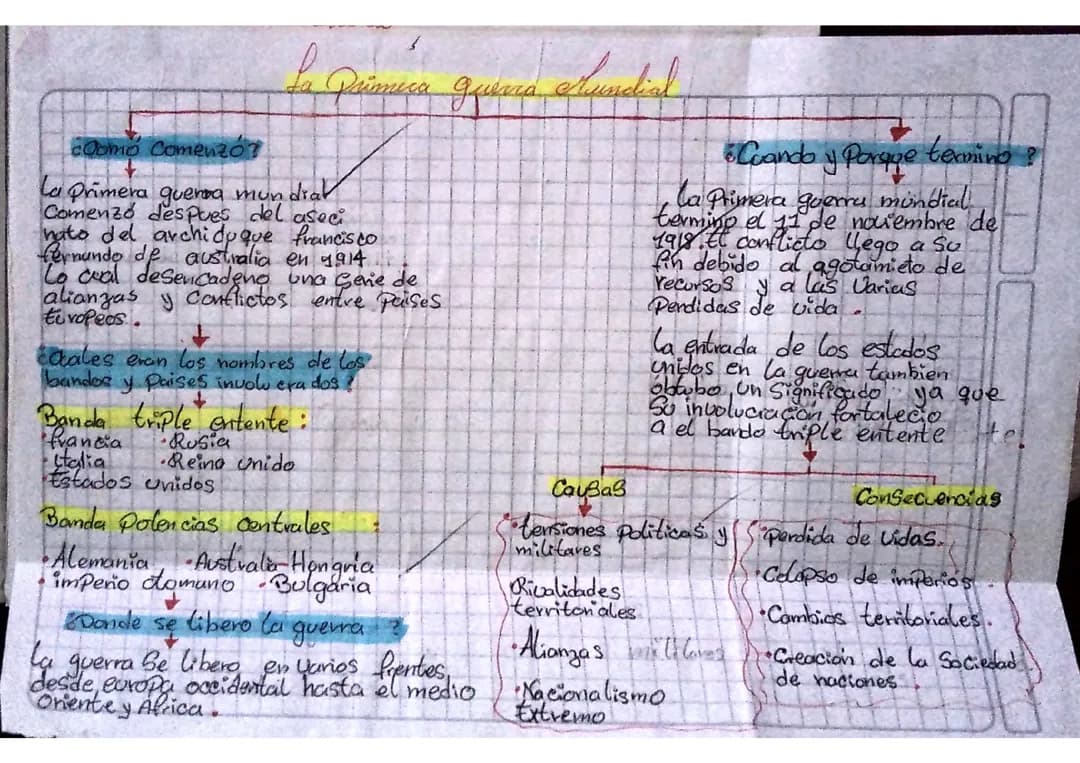 La Primera guerra Mundial
¿Como Comenzó?
La Primera guerra mundial
Comenzó despues del aseci
nato del archiduque francisco
fernando de australia en 1914
Lo cual desencadeno una Serie de
alianzas y Conflictos entre Paises
Europeos.
¿Cuales eran los nombres de los
bandos y Paises involucrados?
Banda triple entente:
•francia •Rusia
•Italia •Reino unido
•Estados unidos
Banda Potencias Centrales :
•Alemania •Australia-Hongria
•imperio otomano •Bulgaria
¿Donde se libero la guerra?
La guerra Se libero en varios frentes
desde europa occidental hasta el medio
Oriente y Africa.
¿Cuando y Porque termino?
La Primera guerra mundial
termino el 11 de noviembre de
1918. El conflicto llego a Su
fin debido al agotamieto de
recursos y a las Varias
Perdidas de vida.
La entrada de los estados
unidos en la guerra tambien
obtubo un Significado ya que
Su involucración fortalecio
a el bando triple entente
Causas
•tensiones Politicas y
militares
Rivalidades
territoriales
•Alianzas militares
•Nacionalismo
Extremo
Consecuencias
•Perdida de vidas.
•Colapso de imperios.
•Cambios territoriales.
•Creación de la Sociedad
de naciones.